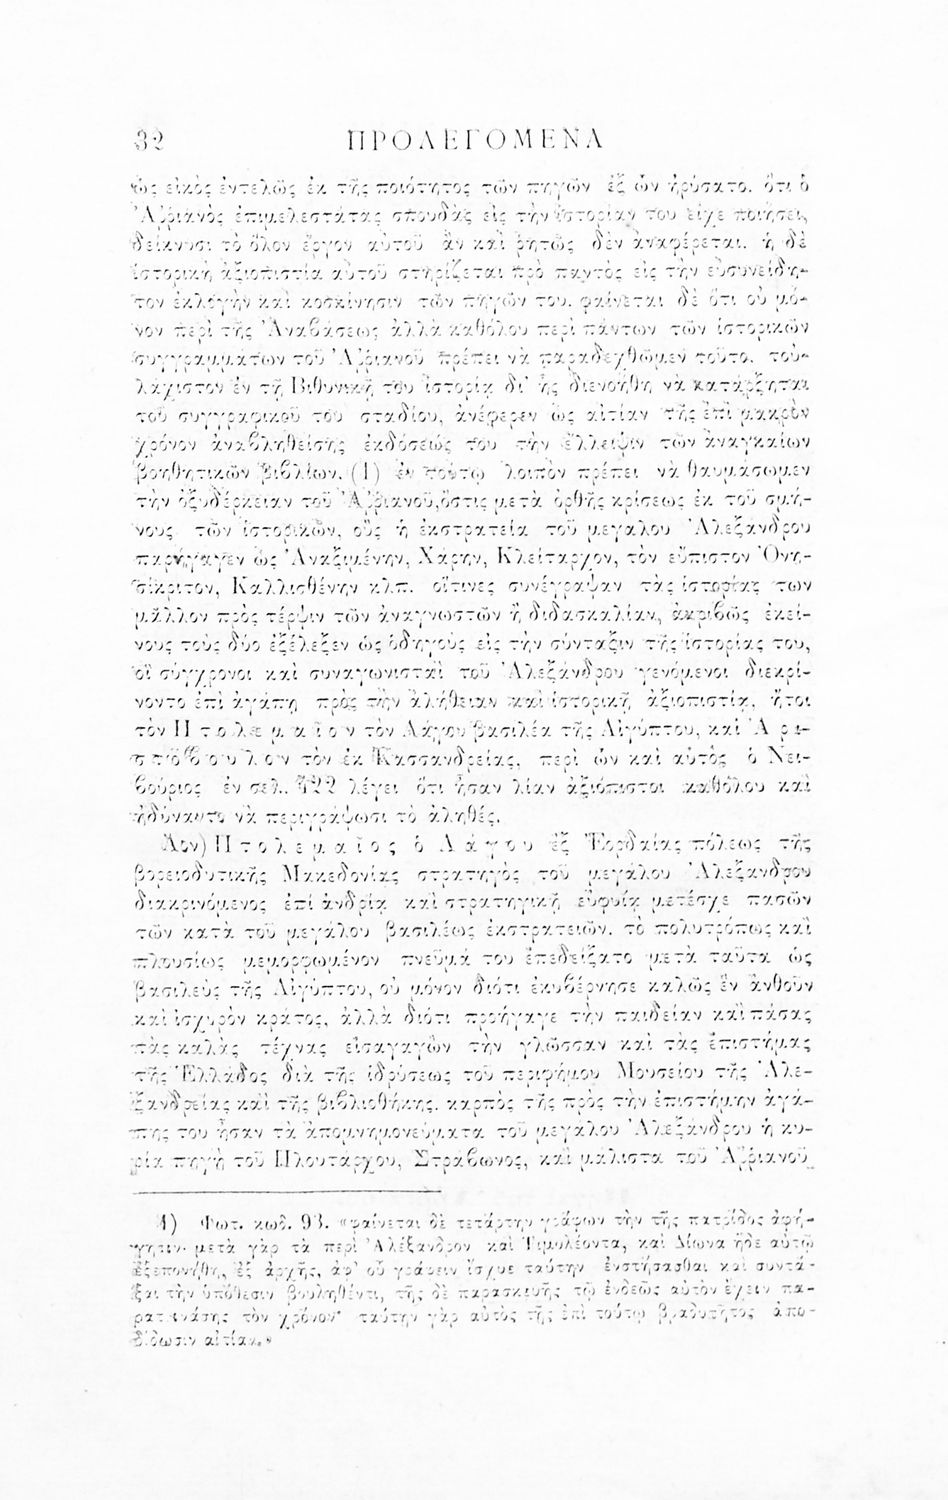 32 ΠΡΟΛΕΓΟΜΕΝΑ
ὡς εἰκὸς ἐντελῶς ἐκ τῆς ποιότητος τῶν πηγῶν ἐξ ὧν ἠρύσατο. ὅτι ὁ
Ἀῤῥιανὸς ἐπιμελεστάτας σπουδὰς εἰς τὴν ἱστορίαν του εἶχε ποιήσει,
δείκνυσι τὸ ὅλον ἔργον αὐτοῦ ἂν καὶ ῥητῶς δὲν ἀναφέρεται. ἡ δὲ
ἱστορικὴ ἀξιοπιστία αὐτοῦ στηρίζεται πρὸ παντὸς εἰς τὴν εὐσυνείδη-
τον ἐκλογὴν καὶ κοσκίνησιν τῶν πηγῶν του. φαίνεται δὲ ὅτι οὐ μό-
νον περὶ τῆς Ἀναβάσεως ἀλλὰ καθόλου περὶ πάντων τῶν ἱστορικῶν
συγγραμμάτων τοῦ Ἀῤῥιανοῦ πρέπει νὰ παραδεχθῶμεν τοῦτο. τοὐ-
λάχιστον ἐν τῇ Βιθυνικῇ του ἱστορίᾳ δι' ἧς διενοήθη νὰ κατάρξηται
τοῦ συγγραφικοῦ του σταδίου, ἀνέφερεν ὡς αἰτίαν τῆς ἐπὶ μακρὸν
χρόνον ἀναβληθείσης ἐκδόσεώς του τὴν ἔλλειψιν τῶν ἀναγκαίων
βοηθητικῶν βιβλίων. (1) ἐν τούτῳ λοιπὸν πρέπει νὰ θαυμάσωμεν
τὴν ὀξυδέρκειαν τοῦ Ἀῤῥιανοῦ, ὅστις μετὰ ὀρθῆς κρίσεως ἐκ τοῦ σμή-
νους τῶν ἱστορικῶν, οὓς ἡ ἐκστρατεία τοῦ μεγάλου Ἀλεξάνδρου
παρήγαγεν ὡς Ἀναξιμένην, Χάρην, Κλείταρχον, τὸν εὔπιστον Ὀνη-
σίκριτον, Καλλισθένην κλπ. οἵτινες συνέγραψαν τὰς ἱστορίας των
μᾶλλον πρὸς τέρψιν τῶν ἀναγνωστῶν ἢ διδασκαλίαν, ἀκριβῶς ἐκεί-
νους τοὺς δύο ἐξέλεξεν ὡς ὁδηγοὺς εἰς τὴν σύνταξιν τῆς ἱστορίας του,
οἳ σύγχρονοι καὶ συναγωνισταὶ τοῦ Ἀλεξάνδρου γενόμενοι διεκρί-
νοντο ἐπὶ ἀγάπῃ πρὸς τὴν ἀλήθειαν καὶ ἱστορικῇ ἀξιοπιστίᾳ, ἤτοι
τὸν Πτολεμαῖον τὸν Λάγου βασιλέα τῆς Αἰγύπτου, καὶ Ἀρι-
στόβουλον τὸν ἐκ Κασσανδρείας, περὶ ὧν καὶ αὐτὸς ὁ Νει-
βούριος ἐν σελ. 422 λέγει ὅτι ἦσαν λίαν ἀξιόπιστοι καθόλου καὶ
ἠδύναντο νὰ περιγράψωσι τὸ ἀληθές.
Αον) Πτολεμαῖος ὁ Λάγου ἐξ Ἐορδαίας πόλεως τῆς
βορειοδυτικῆς Μακεδονίας στρατηγὸς τοῦ μεγάλου Ἀλεξάνδρου
διακρινόμενος ἐπὶ ἀνδρίᾳ καὶ στρατηγικῇ εὐφυίᾳ μετέσχε πασῶν
τῶν κατὰ τοῦ μεγάλου βασιλέως ἐκστρατειῶν. τὸ πολυτρόπως καὶ
πλουσίως μεμορφωμένον πνεῦμά του ἐπεδείξατο μετὰ ταῦτα ὡς
βασιλεὺς τῆς Αἰγύπτου, οὐ μόνον διότι ἐκυβέρνησε καλῶς ἓν ἀνθοῦν
καὶ ἰσχυρὸν κράτος, ἀλλὰ διότι προήγαγε τὴν παιδείαν καὶ πάσας
τὰς καλὰς τέχνας εἰσαγαγὼν τὴν γλῶσσαν καὶ τὰς ἐπιστήμας
τῆς Ἑλλάδος διὰ τῆς ἱδρύσεως τοῦ περιφήμου Μουσείου τῆς Ἀλε-
ξανδρείας καὶ τῆς βιβλιοθήκης. καρπὸς τῆς πρὸς τὴν ἐπιστήμην ἀγά-
πης του ἦσαν τὰ ἀπομνημονεύματα τοῦ μεγάλου Ἀλεξάνδρου ἡ κυ-
ρία πηγὴ τοῦ Πλουτάρχου, Στράβωνος, καὶ μάλιστα τοῦ Ἀῤῥιανοῦ
1) Φωτ. κωδ. 93. «φαίνεται δὲ τετάρτην γράφων τὴν τῆς πατρίδος ἀφή-
γησιν· μετὰ γὰρ τὰ περὶ Ἀλέξανδρον καὶ Τιμολέοντα, καὶ Δίωνα ἥδε αὐτῷ
ἐξεπονήθη, ἐξ ἀρχῆς, ἀφ' οὗ γράφειν ἴσχυε ταύτην ἐνστήσασθαι καὶ συντά-
ξαι τὴν ὑπόθεσιν βουληθέντι, τῆς δὲ παρασκευῆς τῷ ἐνδεῶς αὐτὸν ἔχειν πα-
ρατεινάσης τὸν χρόνον· ταύτην γὰρ αὐτὸς τῆς ἐπὶ τούτῳ βραδυτῆτος ἀπο-
δίδωσιν αἰτίαν.»